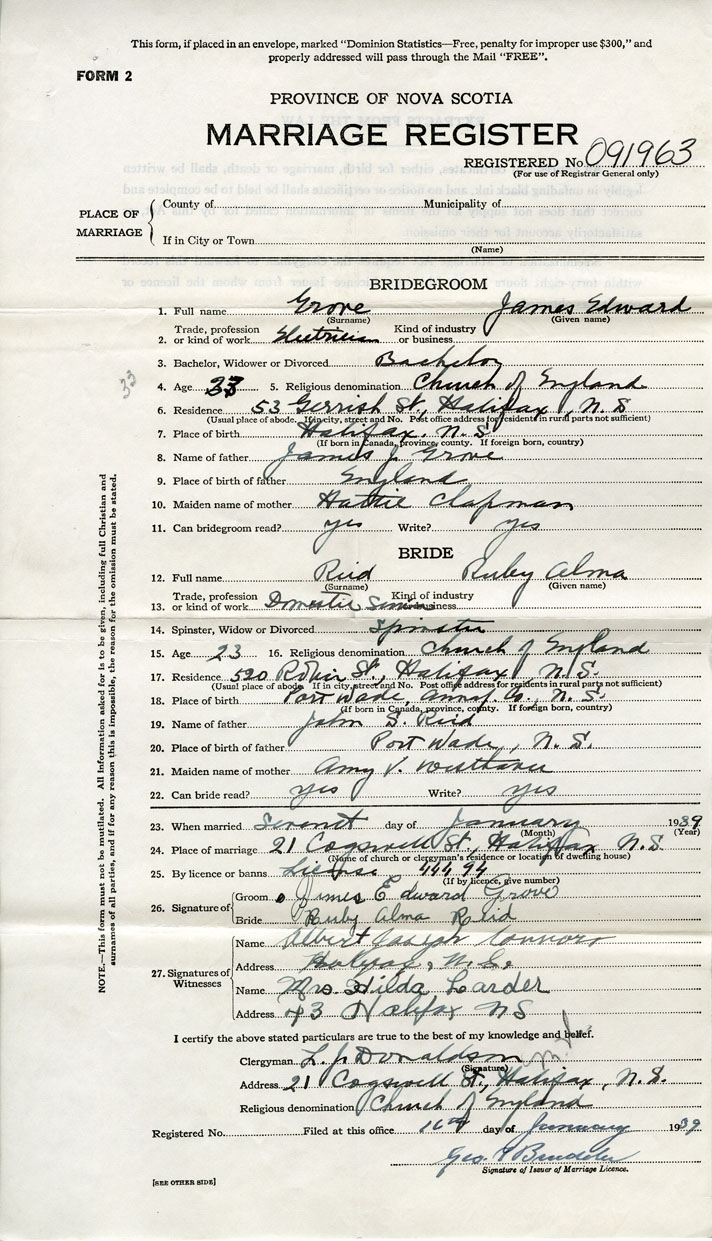 This form, if placed in an envelope, marked "Dominion Statistics—Free, penalty for improper use $300," and
properly addressed will pass through the Mail "FREE".
FORM 2
PROVINCE OF NOVA SCOTIA
MARRIAGE REGISTER
REGISTERED No. 091963
(For use of Registrar General only)
PLACE OF MARRIAGE
County of Municipality of
If in City or Town
(Name)
BRIDEGROOM
1. Full name Grove James Edward
(Surname) (Given name)
2. Trade, profession or kind of work Electrician Kind of industry or business
3. Bachelor, Widower or Divorced Bachelor
33
4. Age 33 5. Religious denomination Church of England
6. Residence 53 Gerrish St., Halifax, N.S
(Usual place of abode. If in city, street and No. Post office address for residents in rural parts not sufficient)
7. Place of birth Halifax. N.S.
(If born in Canada, province, county. If foreign born, country)
8. Name of father James J. Grove
9. Place of birth of father England
10. Maiden name of mother Hattie Clapman
11. Can bridegroom read? yes Write? yes
BRIDE
12. Full name Reid Ruby Alma
(Surname) (Given name)
13. Trade, profession or kind of work Domestic Kind of industry or business
14. Spinster, Widow or Divorced Spinster
15. Age 23 16. Religious denomination Church of England
17. Residence 520 Robie St., Halifax, N.S.
(Usual place of abode. If in city, street and No. Post office address for residents in rural parts not sufficient)
18. Place of birth Port Wade, Annap. Co., N.S.
(If born in Canada, province, county. If foreign born, country)
19. Name of father John S. Reid
20. Place of birth of father Port Wade, N.S.
21. Maiden name of mother Amy V.
22. Can bride read? yes Write? yes
23. When married day of January 1939
(Month) (Year)
24. Place of marriage 21 Cogswell St, Halifax N.S
(Name of church or clergyman's residence or location of dwelling house)
25. By licence or banns License 44494
(If by licence, give number)
26. Signature of
Groom James Edward Grove
Bride Ruby Alma Reid
27. Signatures of Witnesses
Name Albert Joseph Connors
Address Halifax, N.S.
Name Mrs. Hilda Larder
Address 43 Halifax NS
I certify the above stated particulars are true to the best of my knowledge and belief.
Clergyman L. J. Donaldson
(Signature)
Address 21 Cogswell St., Halifax, N.S.
Religious denomination Church of England
Registered No. Filed at this office 16th day of January 1939
Geo.
Signature of Issuer of Marriage Licence.
[SEE OTHER SIDE]
NOTE.—This form must not be mutilated. All information asked for is to be given, including full Christian and
surnames of all parties, and if for any reason this is impossible, the reason for the omission must be stated.